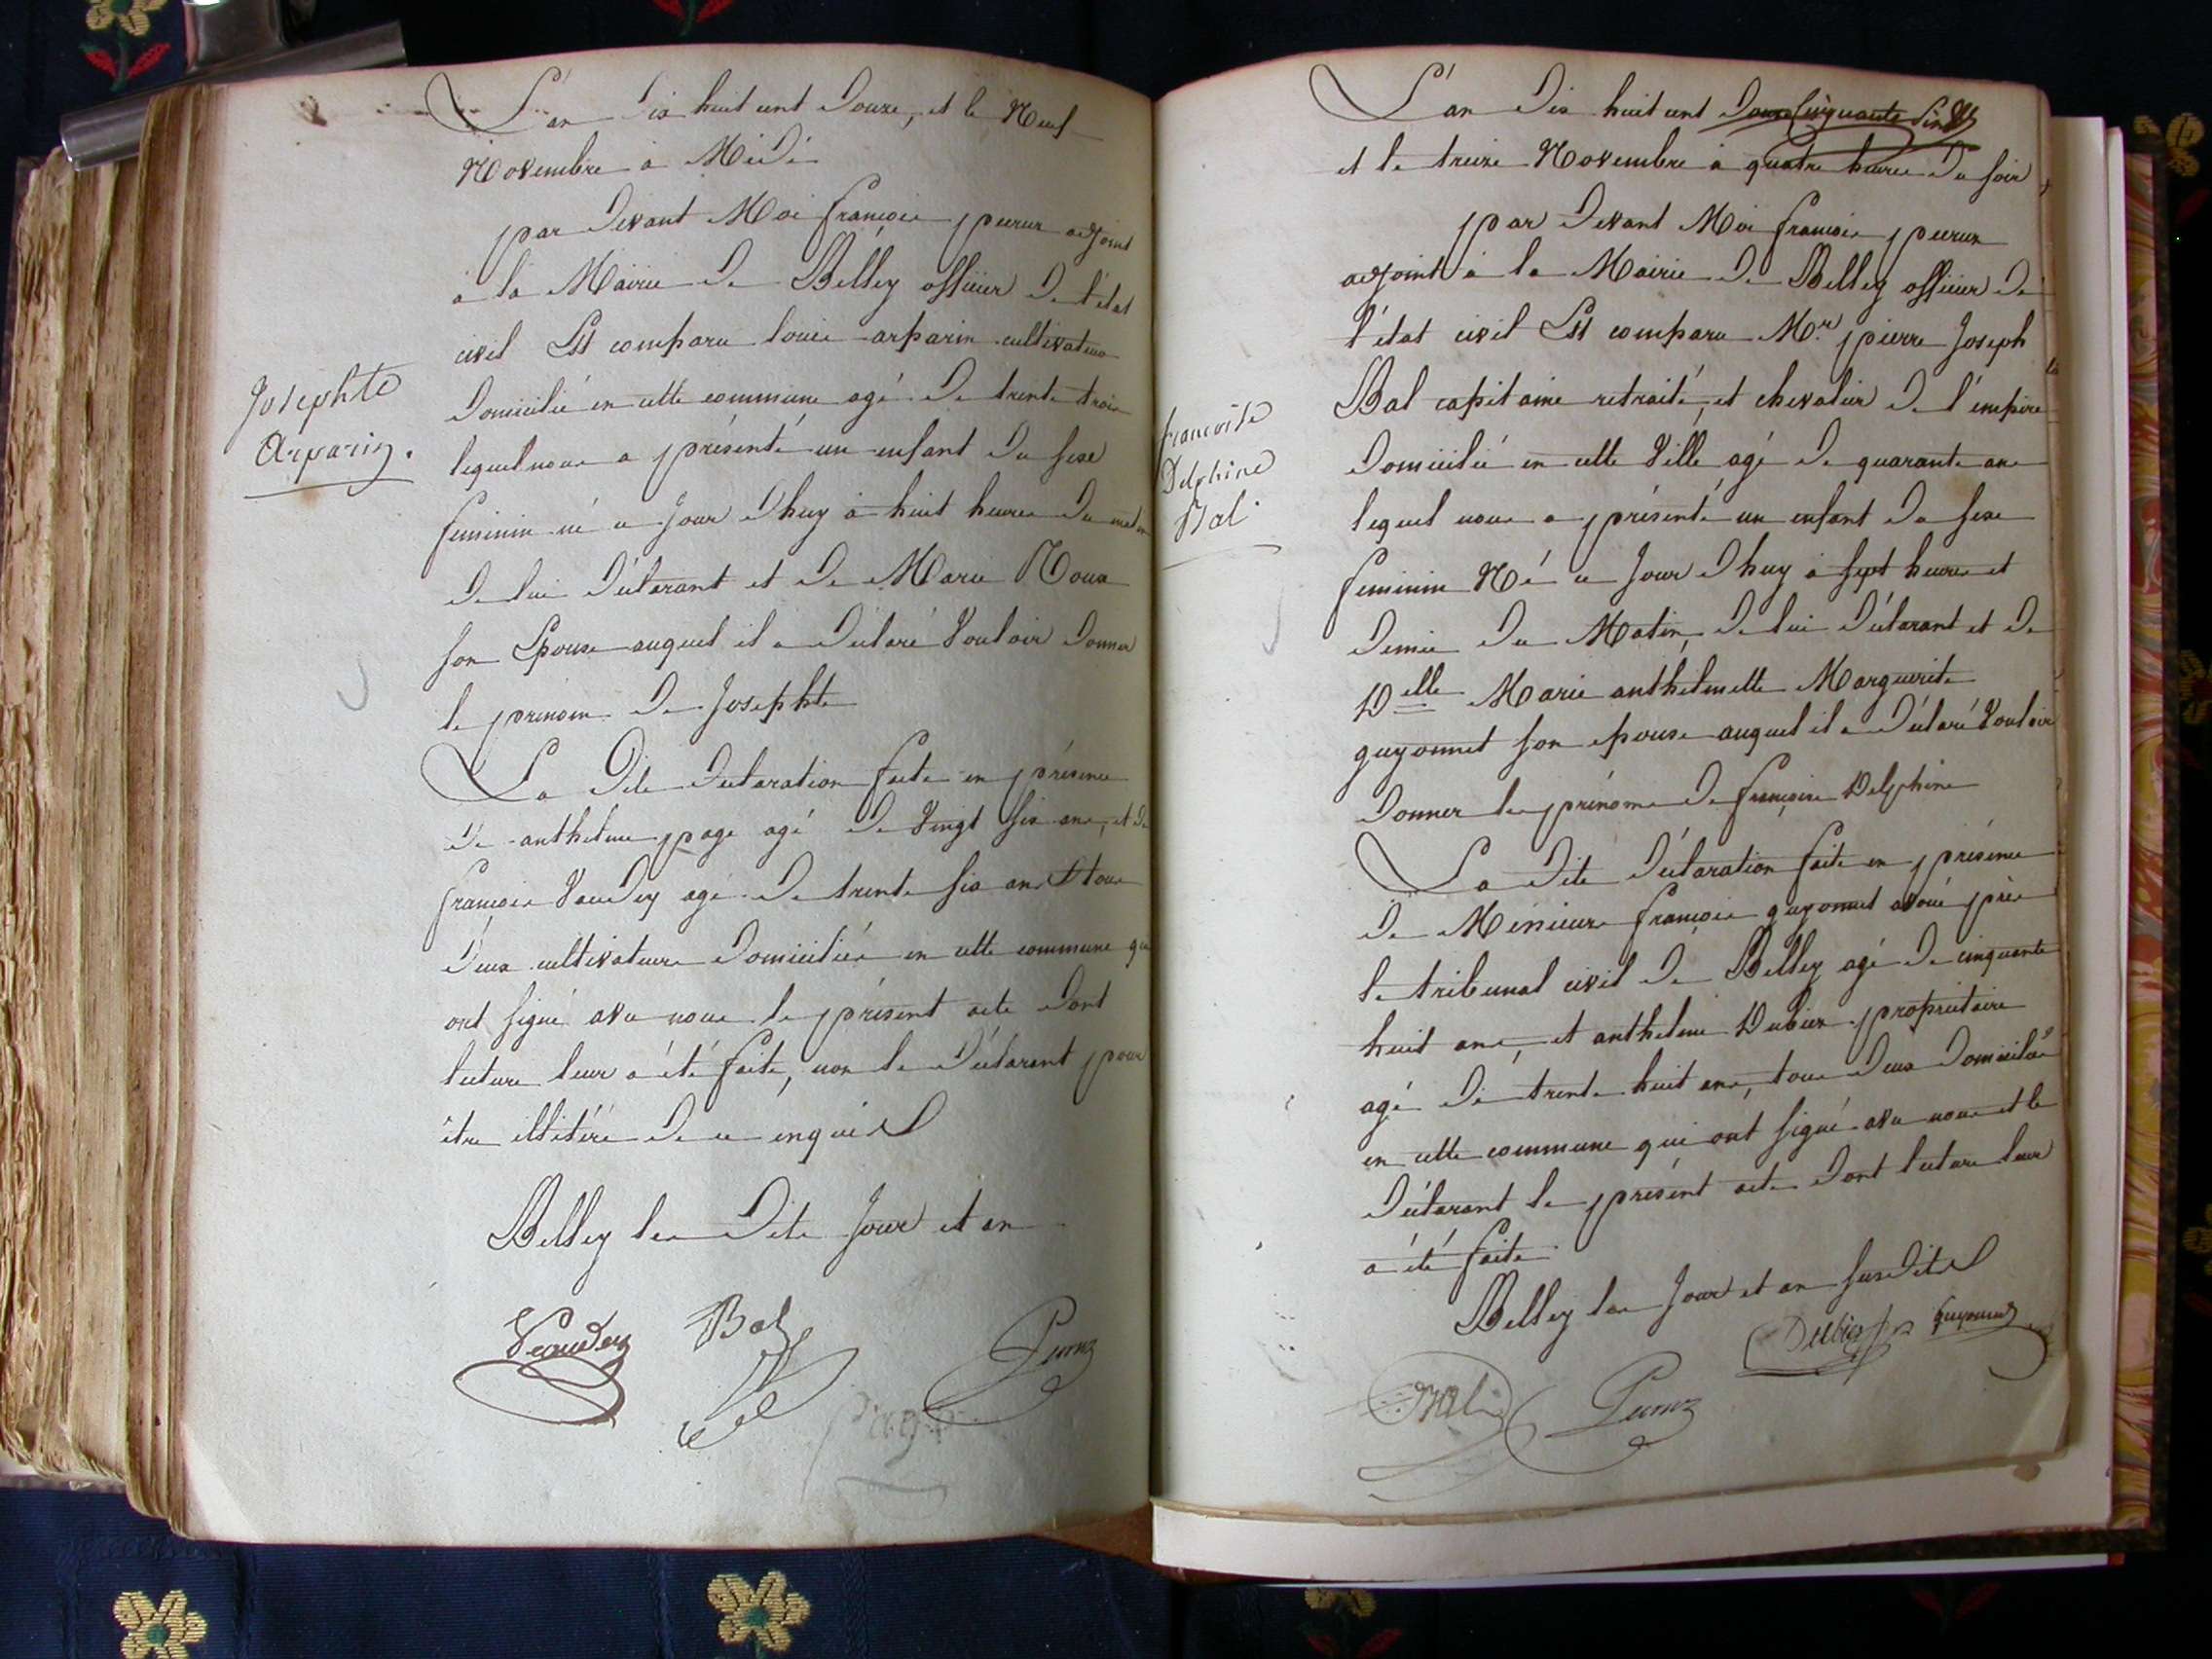 L'an dix huit cent Douze, et le Neuf
Novembre à Midi
par devant Moi françois peeruz adjoint
à la Mairie de Belley officier de l'état
civil Est comparu louis arparin cultivateur
domicilié en cette commune agé de trente trois
lequel nous a présenté un enfant du sexe
feminin né ce jour dhuy à huit heures du matin
de lui déclarant et de Marie
son Epouse auquel il a déclaré Vouloir donner
le prénom de Josephte
La Dite declaration faite en présence
de anthelme page agé de Vingt six ans, et de
françois Vaudey agé de trente six ans tous
deux cultivateurs domiciliés en cette commune qui
ont signé avec nous le présent acte dont
lecture leur a été faite, non le déclarant pour
être illitéré de ce enquis
Belley les Dits Jour et an
Bal
Josephte
Arparin.
L'an dix huit cent
et le treize Novembre à quatre heures du soir
par devant Moi françois peeruz
adjoint à la Mairie de Belley officier de
l'état civil Est comparu Mr. pierre Joseph
Bal capitaine retraité, et chevalier de l'empire
domicilié en cette Ville agé de quarante ans
lequel nous a présenté un enfant du sexe
feminin Né ce jour dhuy à sept heures et
demie du Matin, de lui déclarant et de
Delle Marie anthelmette Marguerite
guyonnet son epouse auquel il a déclaré Vouloir
donner les prénoms de françoise Delphine
La dite déclaration faite en présence
de Messieurs françois guyonnet avoué près
le tribunal civil de Belley agé de cinquante
huit ans, et anthelme Dubiez propriétaire
agé de trente huit ans, tous deux domiciliés
en cette commune qui ont signé avec nous et le
déclarant le présent acte dont lecture leur
a été faite
Belley les Jour et an susdits
Dubiez guyonnet
Bal
françoise
Delphine
Bal.